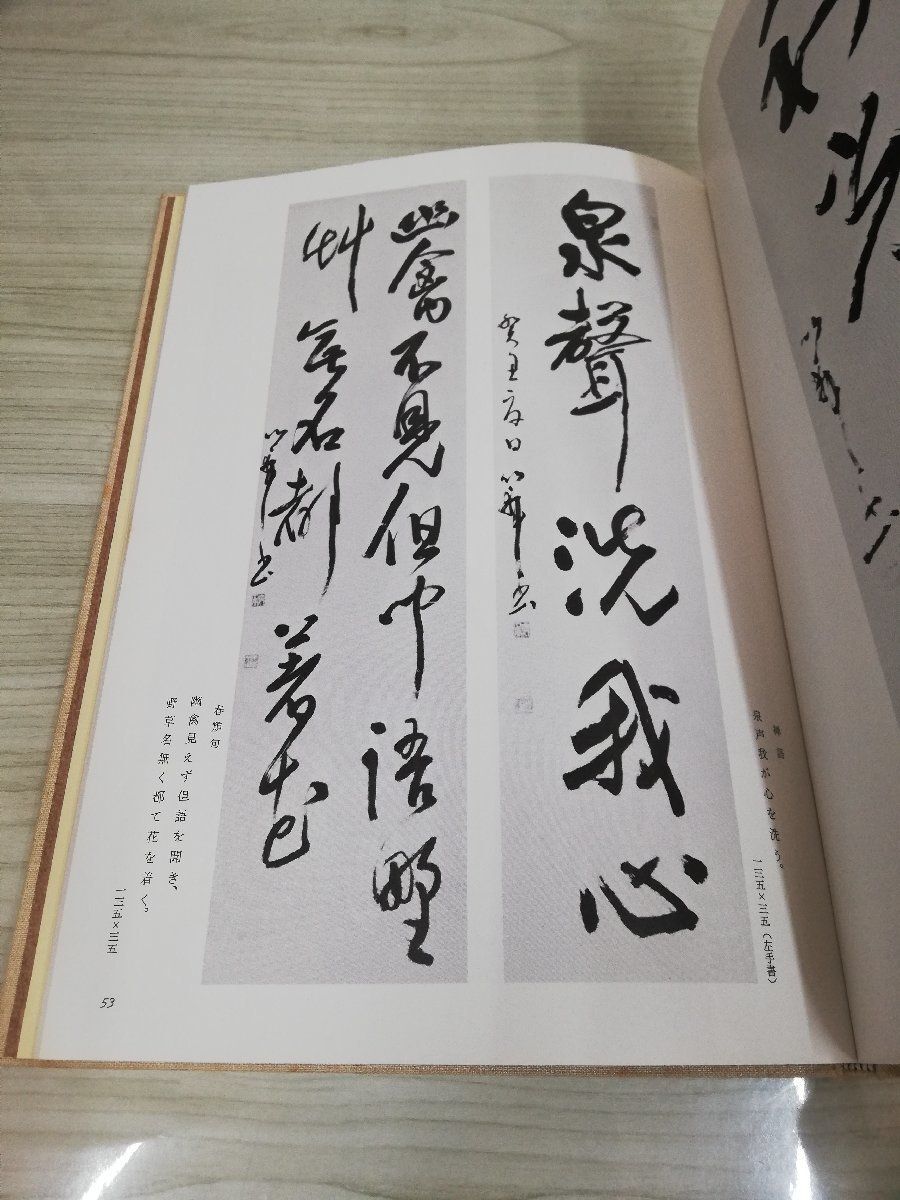 泉聲洗我心
癸丑夏日
書
禅語
泉声我が心を洗う。
一三五×三五(左手書)
幽禽不見但聞語野
艸無名都著花
書
幽禽見えず但語を聞き、
野草名無く都て花を着く。
一三五×三五
53